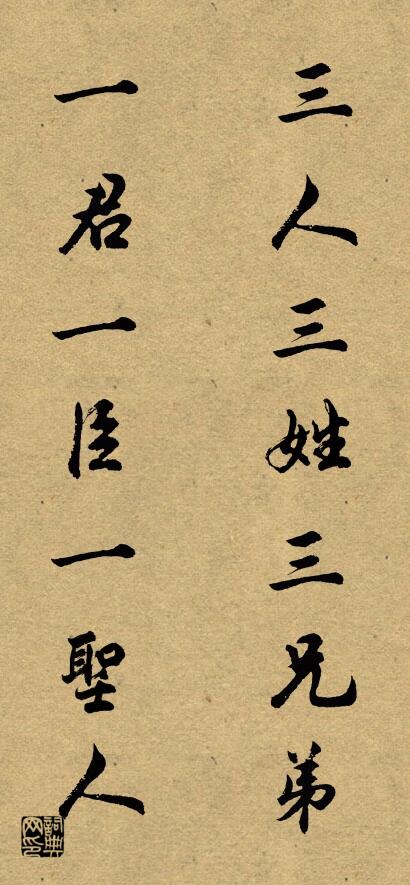 三人三姓三兄弟
一君一臣一聖人
詞典网印